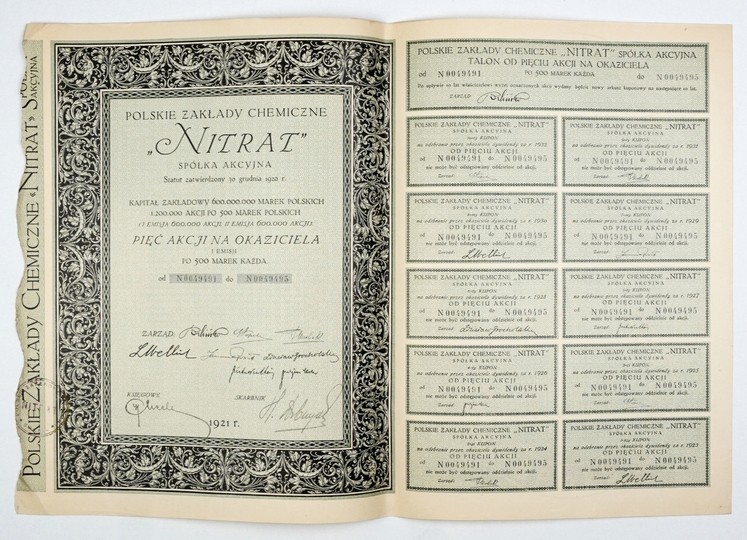 POLSKIE ZAKŁADY CHEMICZNE «NITRAT» SPÓŁKA AKCYJNA
POLSKIE ZAKŁADY CHEMICZNE
„NITRAT”
SPÓŁKA AKCYJNA
Statut zatwierdzony 30 grudnia 1920 r.
KAPITAŁ ZAKŁADOWY 600.000.000 MAREK POLSKICH
1.200.000 AKCJI PO 500 MAREK POLSKICH
(I EMISJA 600.000 AKCJI, II EMISJA 600.000 AKCJI)
PIĘĆ AKCJI NA OKAZICIELA
I EMISJI
PO 500 MAREK KAŻDA.
od N0049491 do N0049495
ZARZĄD:
KSIĘGOWY:
SKARBNIK
1921 r.
POLSKIE ZAKŁADY CHEMICZNE „NITRAT” SPÓŁKA AKCYJNA
TALON OD PIĘCIU AKCJI NA OKAZICIELA
od N0049491 PO 500 MAREK KAŻDA do N0049495
ZARZĄD:
POLSKIE ZAKŁADY CHEMICZNE „NITRAT”
SPÓŁKA AKCYJNA
KUPON
na odebranie przez okaziciela dywidendy za r. 1932
OD PIĘCIU AKCJI
od N0049491 do N0049495
nie może być odstępowany oddzielnie od akcji.
Zarząd:
POLSKIE ZAKŁADY CHEMICZNE „NITRAT”
SPÓŁKA AKCYJNA
KUPON
na odebranie przez okaziciela dywidendy za r. 1931
OD PIĘCIU AKCJI
od N0049491 do N0049495
nie może być odstępowany oddzielnie od akcji.
Zarząd:
POLSKIE ZAKŁADY CHEMICZNE „NITRAT”
SPÓŁKA AKCYJNA
KUPON
na odebranie przez okaziciela dywidendy za r. 1930
OD PIĘCIU AKCJI
od N0049491 do N0049495
nie może być odstępowany oddzielnie od akcji.
Zarząd:
POLSKIE ZAKŁADY CHEMICZNE „NITRAT”
SPÓŁKA AKCYJNA
KUPON
na odebranie przez okaziciela dywidendy za r. 1929
OD PIĘCIU AKCJI
od N0049491 do N0049495
nie może być odstępowany oddzielnie od akcji.
Zarząd:
POLSKIE ZAKŁADY CHEMICZNE „NITRAT”
SPÓŁKA AKCYJNA
KUPON
na odebranie przez okaziciela dywidendy za r. 1928
OD PIĘCIU AKCJI
od N0049491 do N0049495
nie może być odstępowany oddzielnie od akcji.
Zarząd:
POLSKIE ZAKŁADY CHEMICZNE „NITRAT”
SPÓŁKA AKCYJNA
KUPON
na odebranie przez okaziciela dywidendy za r. 1927
OD PIĘCIU AKCJI
od N0049491 do N0049495
nie może być odstępowany oddzielnie od akcji.
Zarząd:
POLSKIE ZAKŁADY CHEMICZNE „NITRAT”
SPÓŁKA AKCYJNA
KUPON
na odebranie przez okaziciela dywidendy za r. 1926
OD PIĘCIU AKCJI
od N0049491 do N0049495
nie może być odstępowany oddzielnie od akcji.
Zarząd:
POLSKIE ZAKŁADY CHEMICZNE „NITRAT”
SPÓŁKA AKCYJNA
KUPON
na odebranie przez okaziciela dywidendy za r. 1925
OD PIĘCIU AKCJI
od N0049491 do N0049495
nie może być odstępowany oddzielnie od akcji.
Zarząd:
POLSKIE ZAKŁADY CHEMICZNE „NITRAT”
SPÓŁKA AKCYJNA
KUPON
na odebranie przez okaziciela dywidendy za r. 1924
OD PIĘCIU AKCJI
od N0049491 do N0049495
nie może być odstępowany oddzielnie od akcji.
Zarząd:
POLSKIE ZAKŁADY CHEMICZNE „NITRAT”
SPÓŁKA AKCYJNA
KUPON
na odebranie przez okaziciela dywidendy za r. 1923
OD PIĘCIU AKCJI
od N0049491 do N0049495
nie może być odstępowany oddzielnie od akcji.
Zarząd: